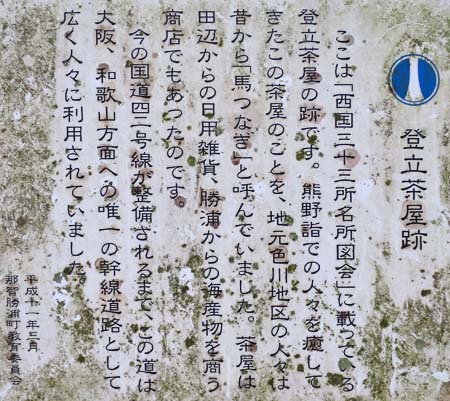 登立茶屋跡
ここは「西国三十三所名所図会」に載っている
登立茶屋の跡です。熊野詣での人々を癒して
きたこの茶屋のことを、地元色川地区の人々は
昔から「馬つなぎ」と呼んでいました。茶屋は
田辺からの日用雑貨、勝浦からの海産物を商う
商店でもあったのです。
今の国道四二号線が整備されるまで、この道は
大阪、和歌山方面への唯一の幹線道路として
広く人々に利用されていました。
平成十一年三月
那智勝浦町教育委員会